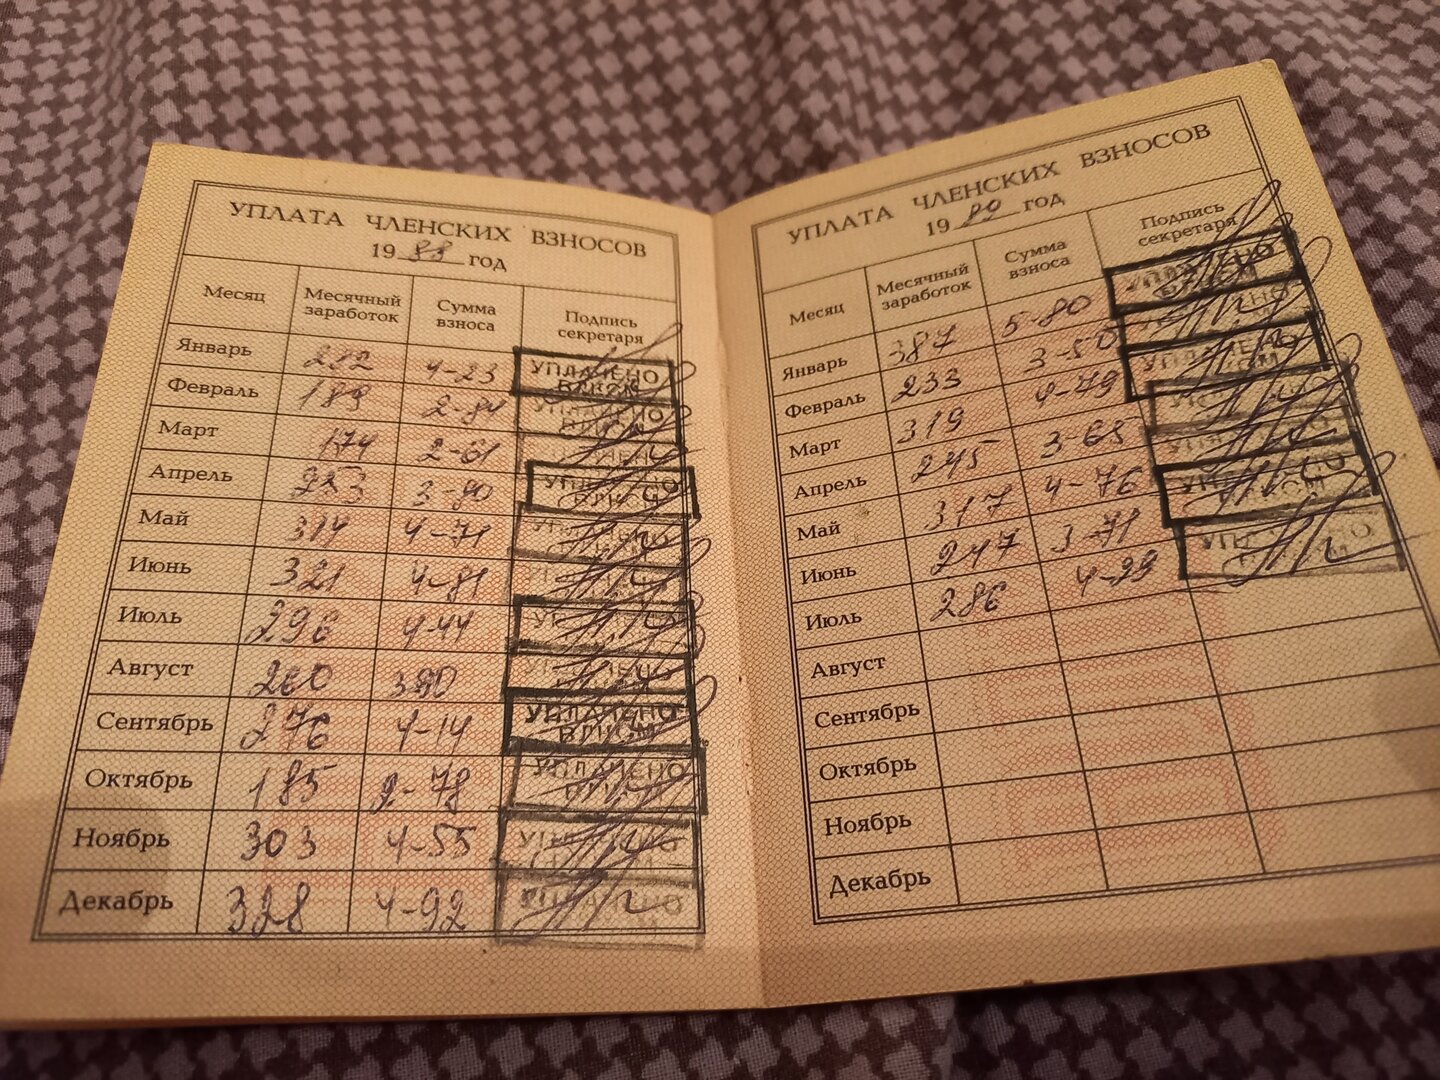 УПЛАТА ЧЛЕНСКИХ ВЗНОСОВ
1988 год
Месяц Месячный заработок Сумма взноса Подпись секретаря
Январь 282 4-23 УПЛАЧЕНО ВЛКСМ
Февраль 189 2-84 УПЛАЧЕНО ВЛКСМ
Март 174 2-61
Апрель 253 3-80 УПЛАЧЕНО ВЛКСМ
Май 314 4-71 УПЛАЧЕНО
Июнь 321 4-81
Июль 296 4-44 УПЛАЧЕНО
Август 260 3 90 УПЛАЧЕНО
Сентябрь 276 4-14 УПЛАЧЕНО ВЛКСМ
Октябрь 185 2-78 УПЛАЧЕНО
Ноябрь 303 4-55 УПЛАЧЕНО
Декабрь 328 4-92 УПЛАЧЕНО
УПЛАТА ЧЛЕНСКИХ ВЗНОСОВ
1989 год
Месяц Месячный заработок Сумма взноса Подпись секретаря
Январь 387 5-80 УПЛАЧЕНО ВЛКСМ
Февраль 233 3-50 УПЛАЧЕНО
Март 319 4-79 УПЛАЧЕНО ВЛКСМ
Апрель 245 3-68
Май 317 4-76 УПЛАЧЕНО
Июнь 247 3-71 УПЛАЧЕНО ВЛКСМ
Июль 286 4-29 УПЛАЧЕНО ВЛКСМ
Август
Сентябрь
Октябрь
Ноябрь
Декабрь